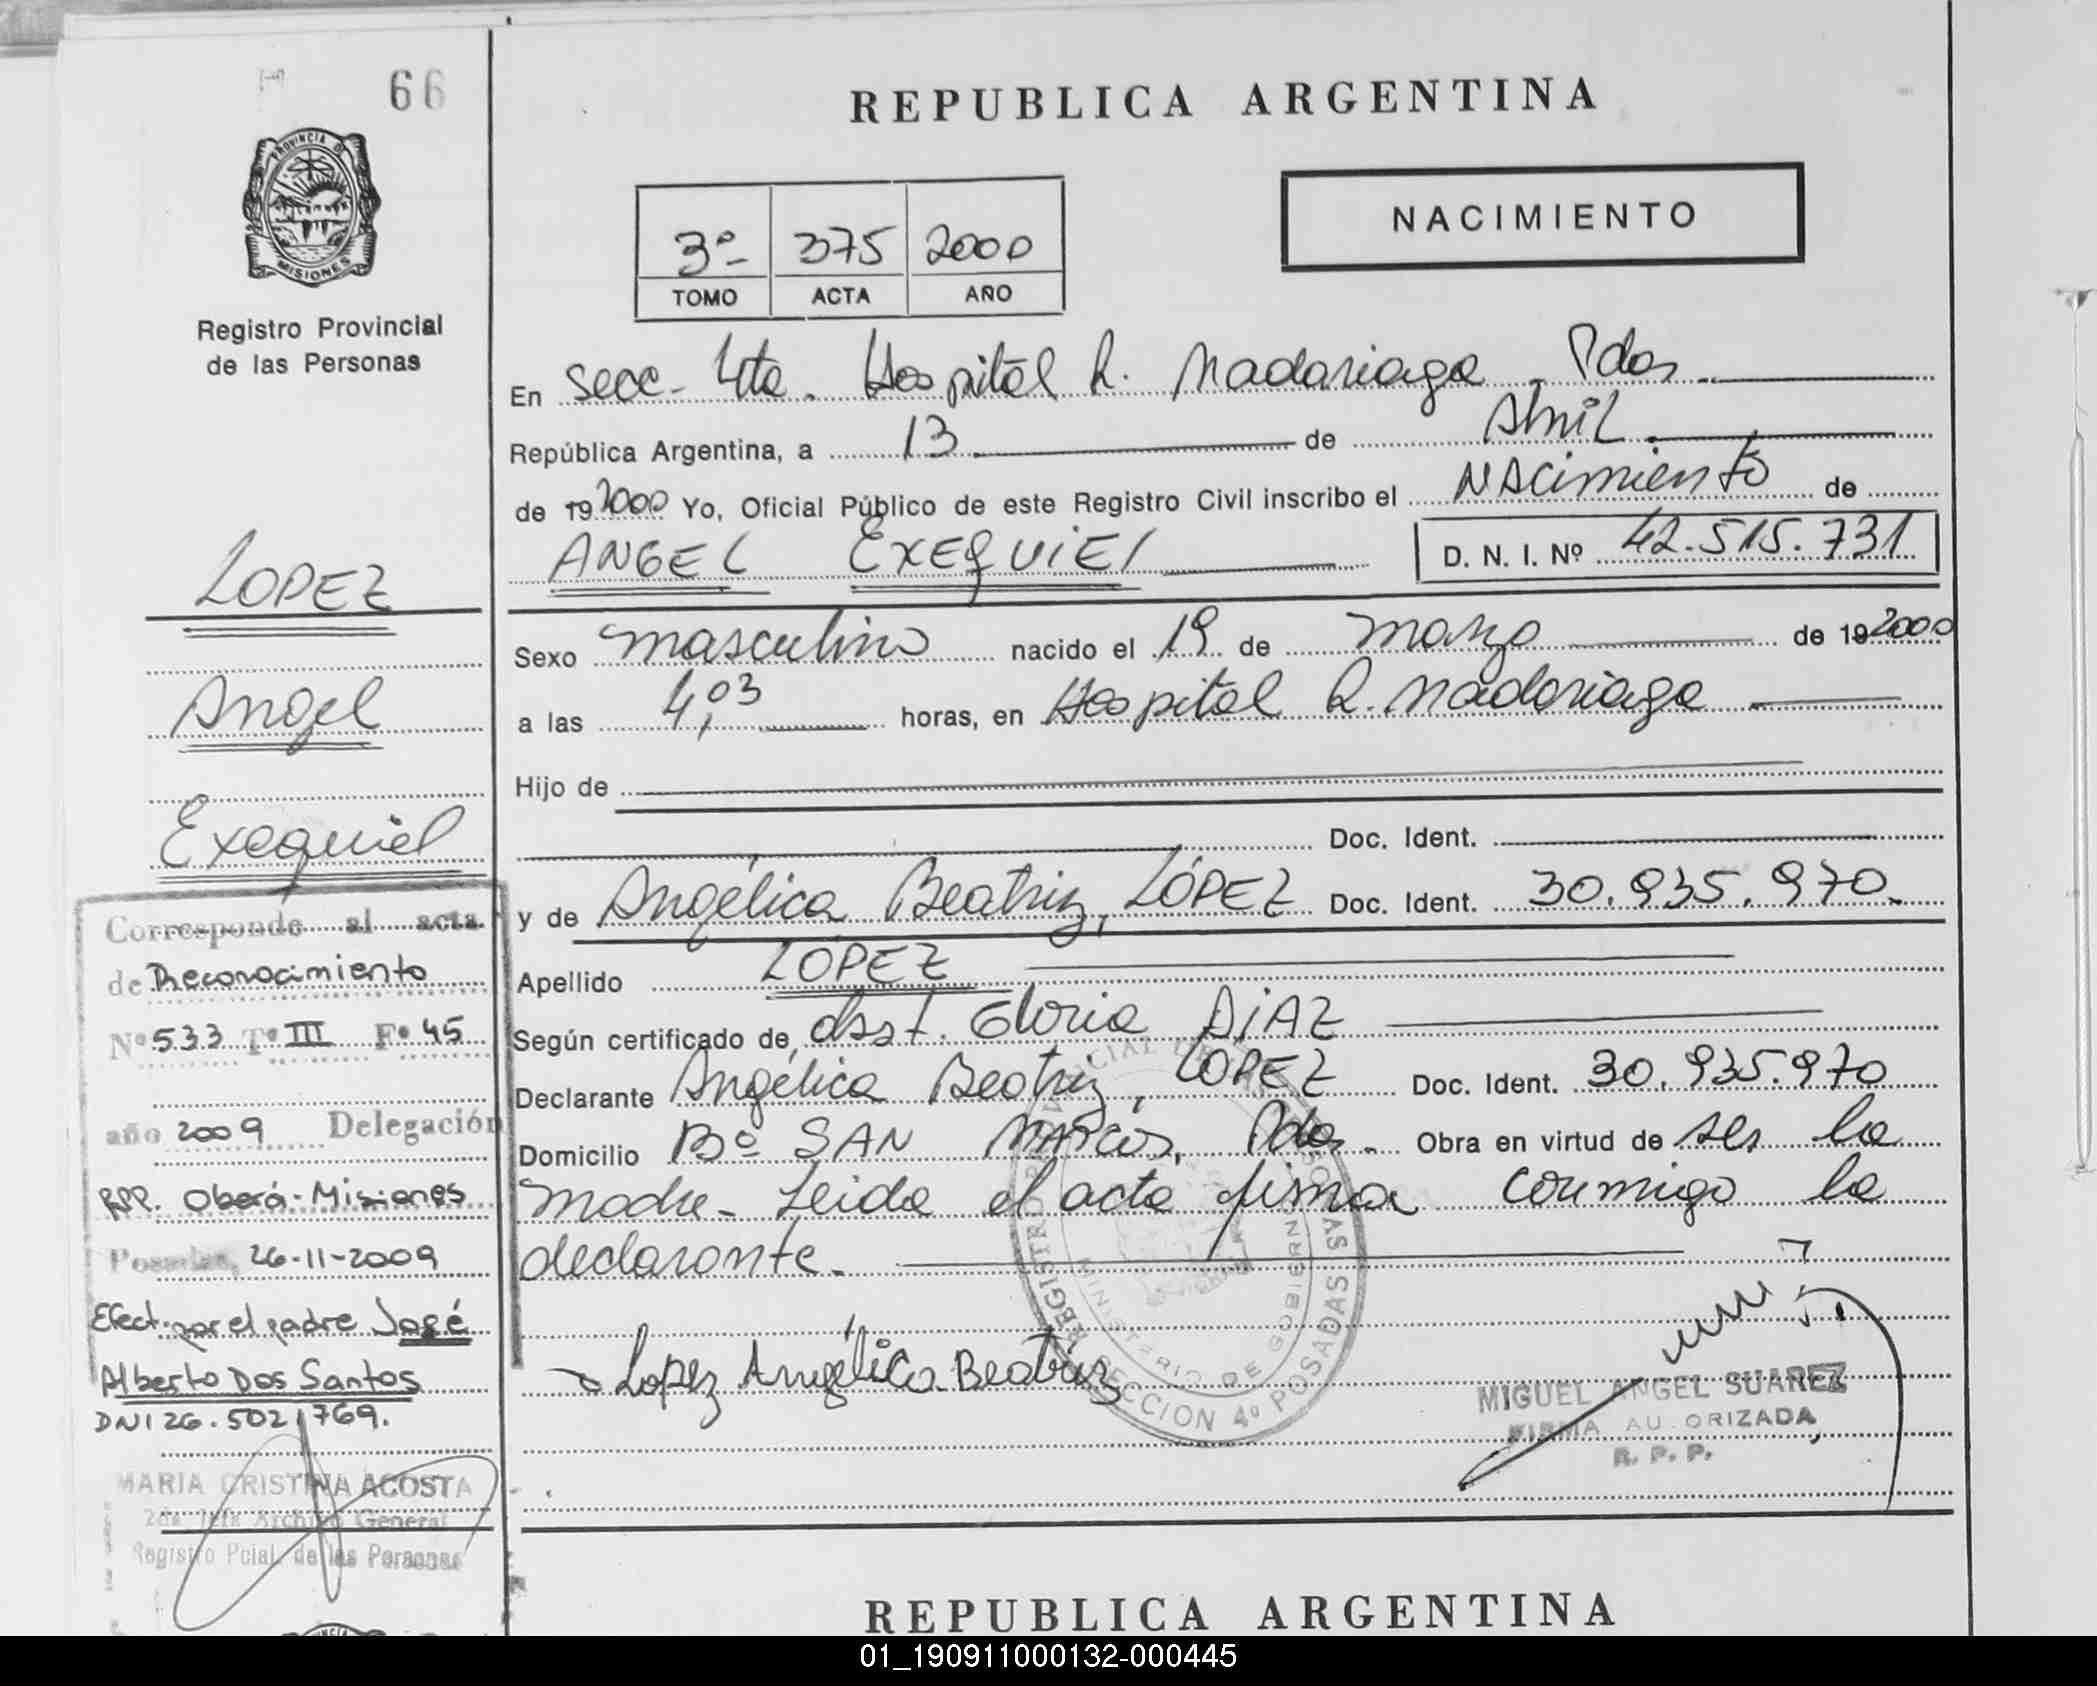 66
PROVINCIA DE
MISIONES
Registro Provincial
de las Personas
LOPEZ
Angel
Exequiel
Corresponde al acta
de Reconocimiento
Nº 533 Tº III Fº 45
año 2009 Delegación
RPP. Oberá-Misiones
Posadas, 26-11-2009
Efect. por el padre José
Alberto Dos Santos
DNI 26.502.769.
MARIA CRISTINA ACOSTA
2da Jefe Archivo General
Registro Pcial. de las Personas
REPUBLICA ARGENTINA
3º 375 2000
TOMO ACTA AÑO
NACIMIENTO
En Secc- 4ta. Hospital R. Madariaga - Pdas
República Argentina, a 13 de Abril
de 19 2000 Yo, Oficial Público de este Registro Civil inscribo el NAcimiento de
ANGEL EXEQUIEl D. N. I. Nº 42.515.731
Sexo masculino nacido el 19 de marzo de 19 2000
a las 4,03 horas, en Hospital R. Madariaga
Hijo de
Doc. Ident.
y de Angélica Beatriz, LÓPEZ Doc. Ident. 30.935.970.
Apellido LÓPEZ
Según certificado de, obst. Gloria DiAZ
Declarante Angélica Beatriz, LOPEZ Doc. Ident. 30.935.970
Domicilio Bº SAN MARCOS, Pdas. Obra en virtud de ser la
madre- Leida el acta firma conmigo la
declarante.
Lopez Angélica Beatriz
MINISTERIO DE GOBIERNO
SECCION 4º POSADAS
MIGUEL ANGEL SUAREZ
FIRMA AUTORIZADA
R. P. P.
REPUBLICA ARGENTINA
01_190911000132-000445